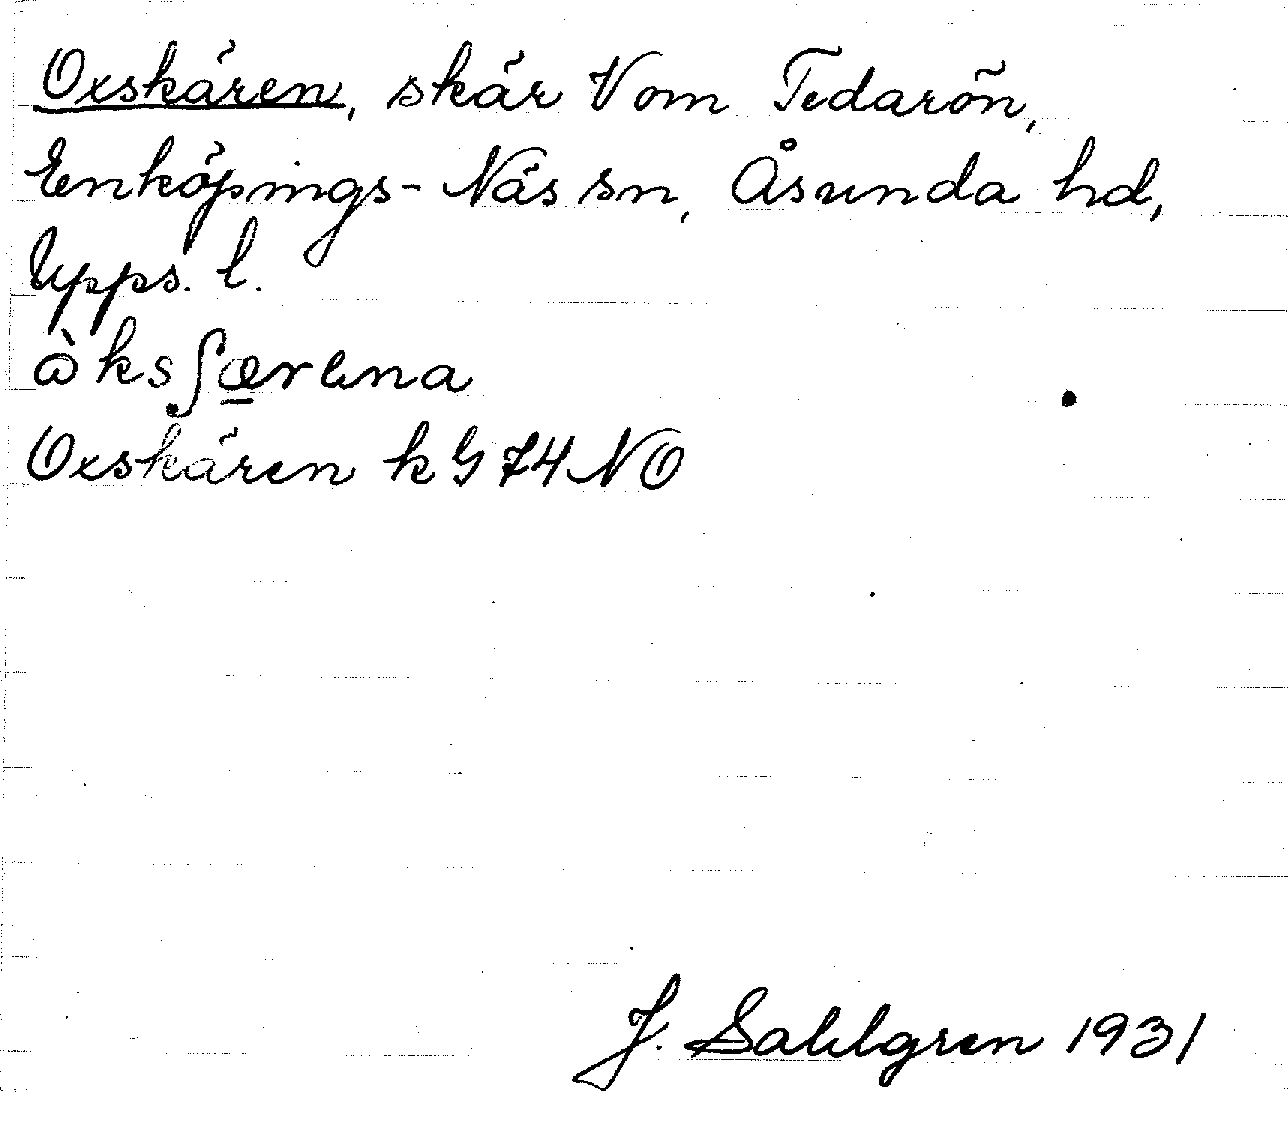 Oxskären, skär V om Tedarön,
Enköpings-Näs sn, Åsunda hd,
Upps. l.
Oxskären k G 74 NO
J. Sahlgren 1931